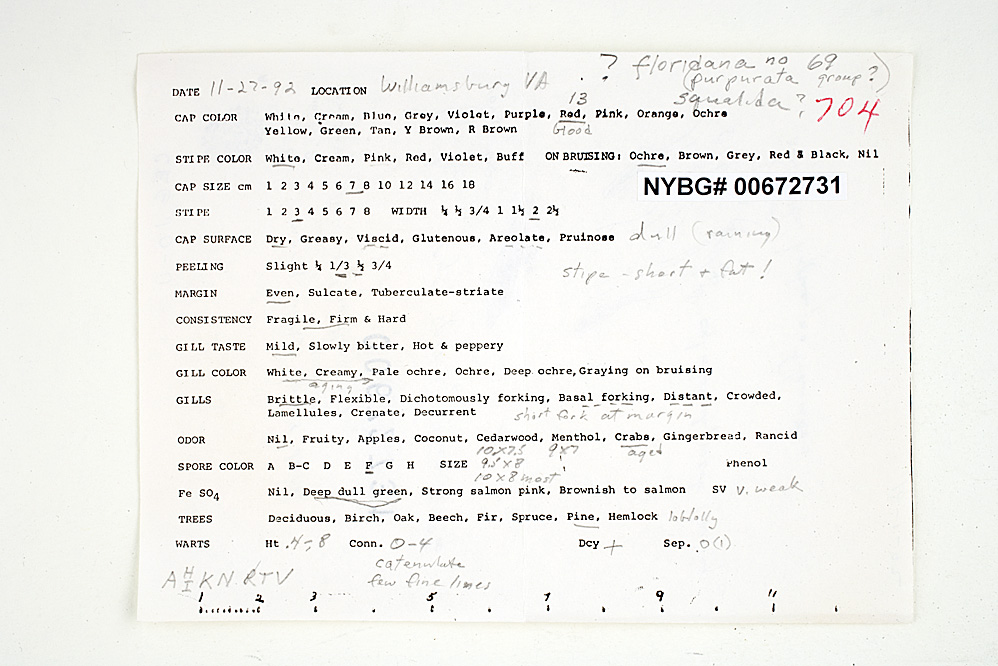 ? floridana no 69
(purpurata group?)
squalida? 704
DATE 11-27-92 LOCATION Williamsburg VA
13
CAP COLOR White, Cream, Blue, Grey, Violet, Purple, Red, Pink, Orange, Ochre
Yellow, Green, Tan, Y Brown, R Brown blood
STIPE COLOR White, Cream, Pink, Red, Violet, Buff ON BRUISING: Ochre, Brown, Grey, Red & Black, Nil
CAP SIZE cm 1 2 3 4 5 6 7 8 10 12 14 16 18
NYBG# 00672731
STIPE 1 2 3 4 5 6 7 8 WIDTH ¼ ½ 3/4 1 1½ 2 2½
CAP SURFACE Dry, Greasy, Viscid, Glutenous, Areolate, Pruinose dull (raining)
PEELING Slight ¼ 1/3 ½ 3/4
stipe - short + fat!
MARGIN Even, Sulcate, Tuberculate-striate
CONSISTENCY Fragile, Firm & Hard
GILL TASTE Mild, Slowly bitter, Hot & peppery
GILL COLOR White, Creamy, Pale ochre, Ochre, Deep ochre, Graying on bruising
aging
GILLS Brittle, Flexible, Dichotomously forking, Basal forking, Distant, Crowded,
Lamellules, Crenate, Decurrent short fork at margin
ODOR Nil, Fruity, Apples, Coconut, Cedarwood, Menthol, Crabs, Gingerbread, Rancid
10x7.5 9x7 aged
SPORE COLOR A B-C D E F G H SIZE 9.5x8 Phenol
10x8 most
Fe SO4 Nil, Deep dull green, Strong salmon pink, Brownish to salmon SV v. weak
TREES Deciduous, Birch, Oak, Beech, Fir, Spruce, Pine, Hemlock loblolly
WARTS Ht .4-.8 Conn. 0-4 Dcy + Sep. 0(1)
catenulate
few fine lines
A H/I K N R T V
1 2 3 5 7 9 11